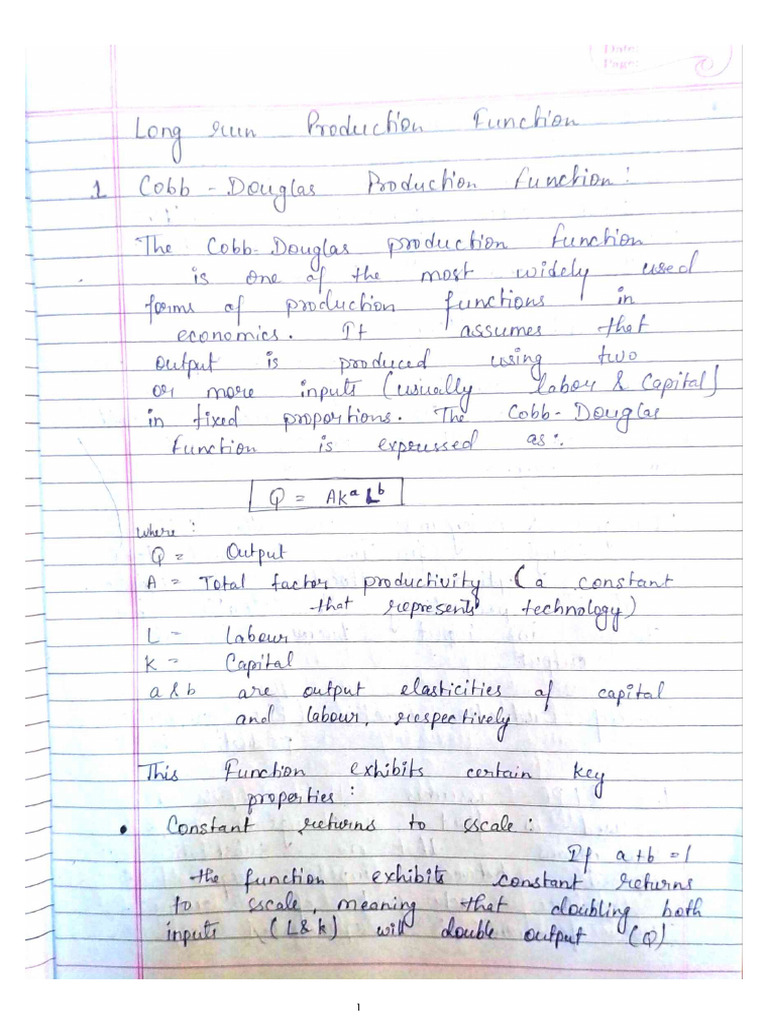 Date:
Page:
Long run Production Function
1 Cobb-Douglas Production Function:
The Cobb-Douglas production function
is one of the most widely used
forms of production functions in
economics. It assumes that
output is produced using two
or more inputs (usually labour & Capital)
in fixed proportions. The Cobb-Douglas
Function is expressed as:
Q = AKᵃLᵇ
where:
Q = Output
A = Total factor productivity (a constant
that represents technology)
L = Labour
K = Capital
a & b are output elasticities of capital
and labour, respectively
This Function exhibits certain key
properties:
• Constant returns to scale:
If a+b=1
the function exhibits constant returns
to scale, meaning that doubling both
inputs (L & K) will double output (Q)
1